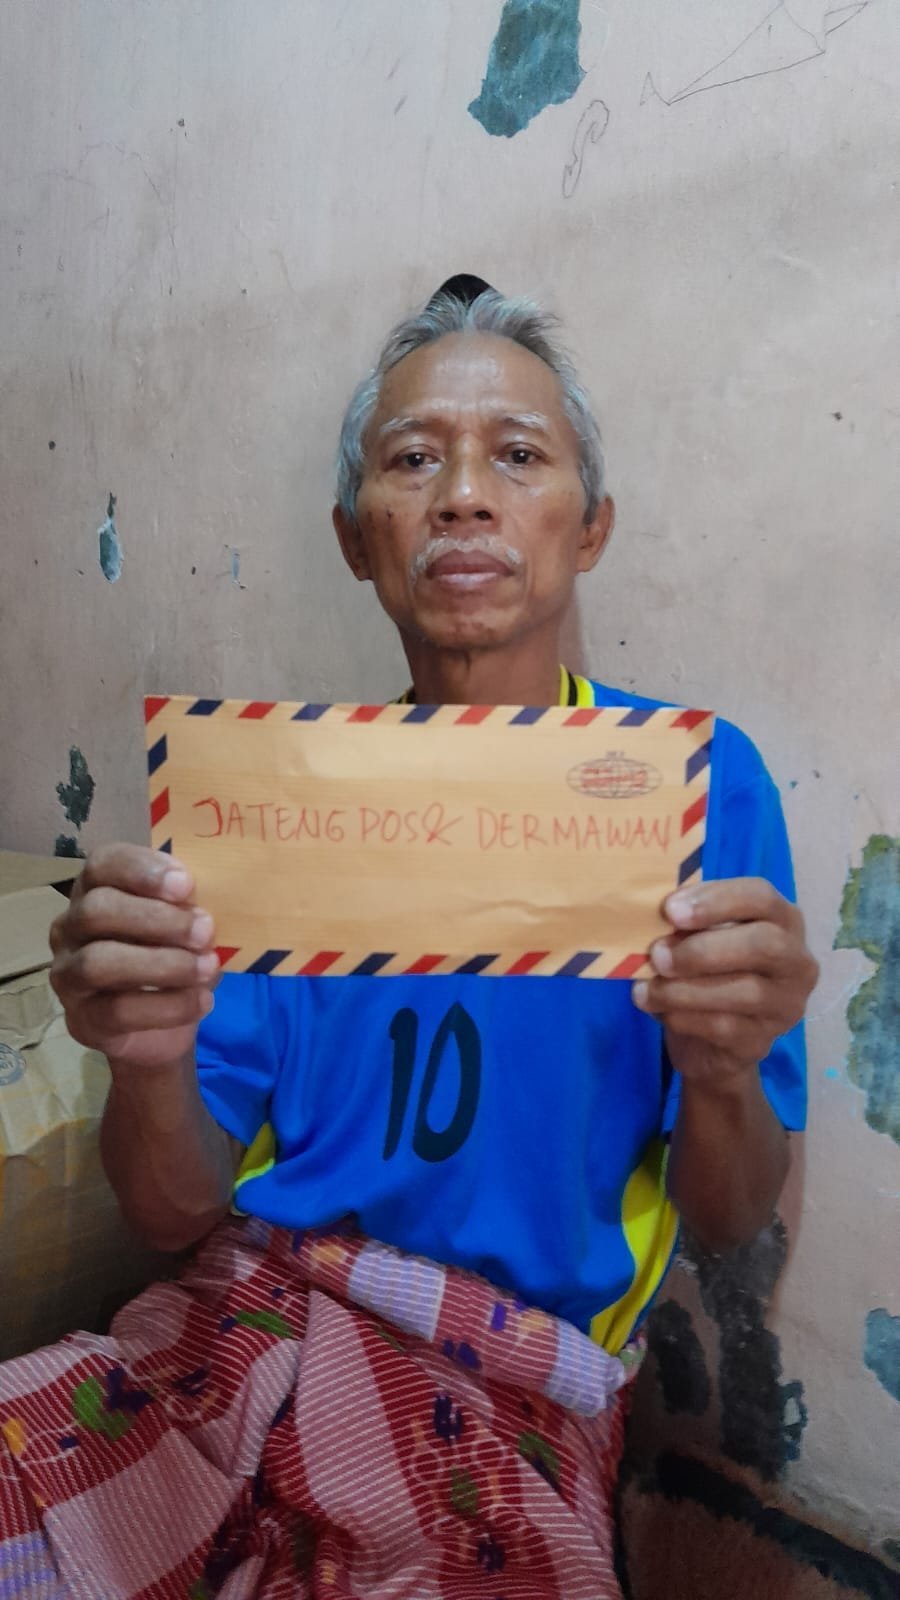 JATENG POS & DERMAWAN
10